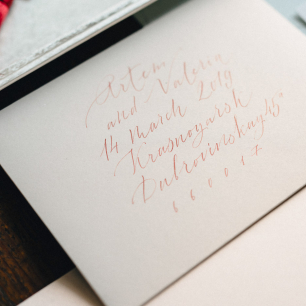 Artem
and Valeria
14 March 2019
Krasnoyarsk
Dubrovinskay 45
660017